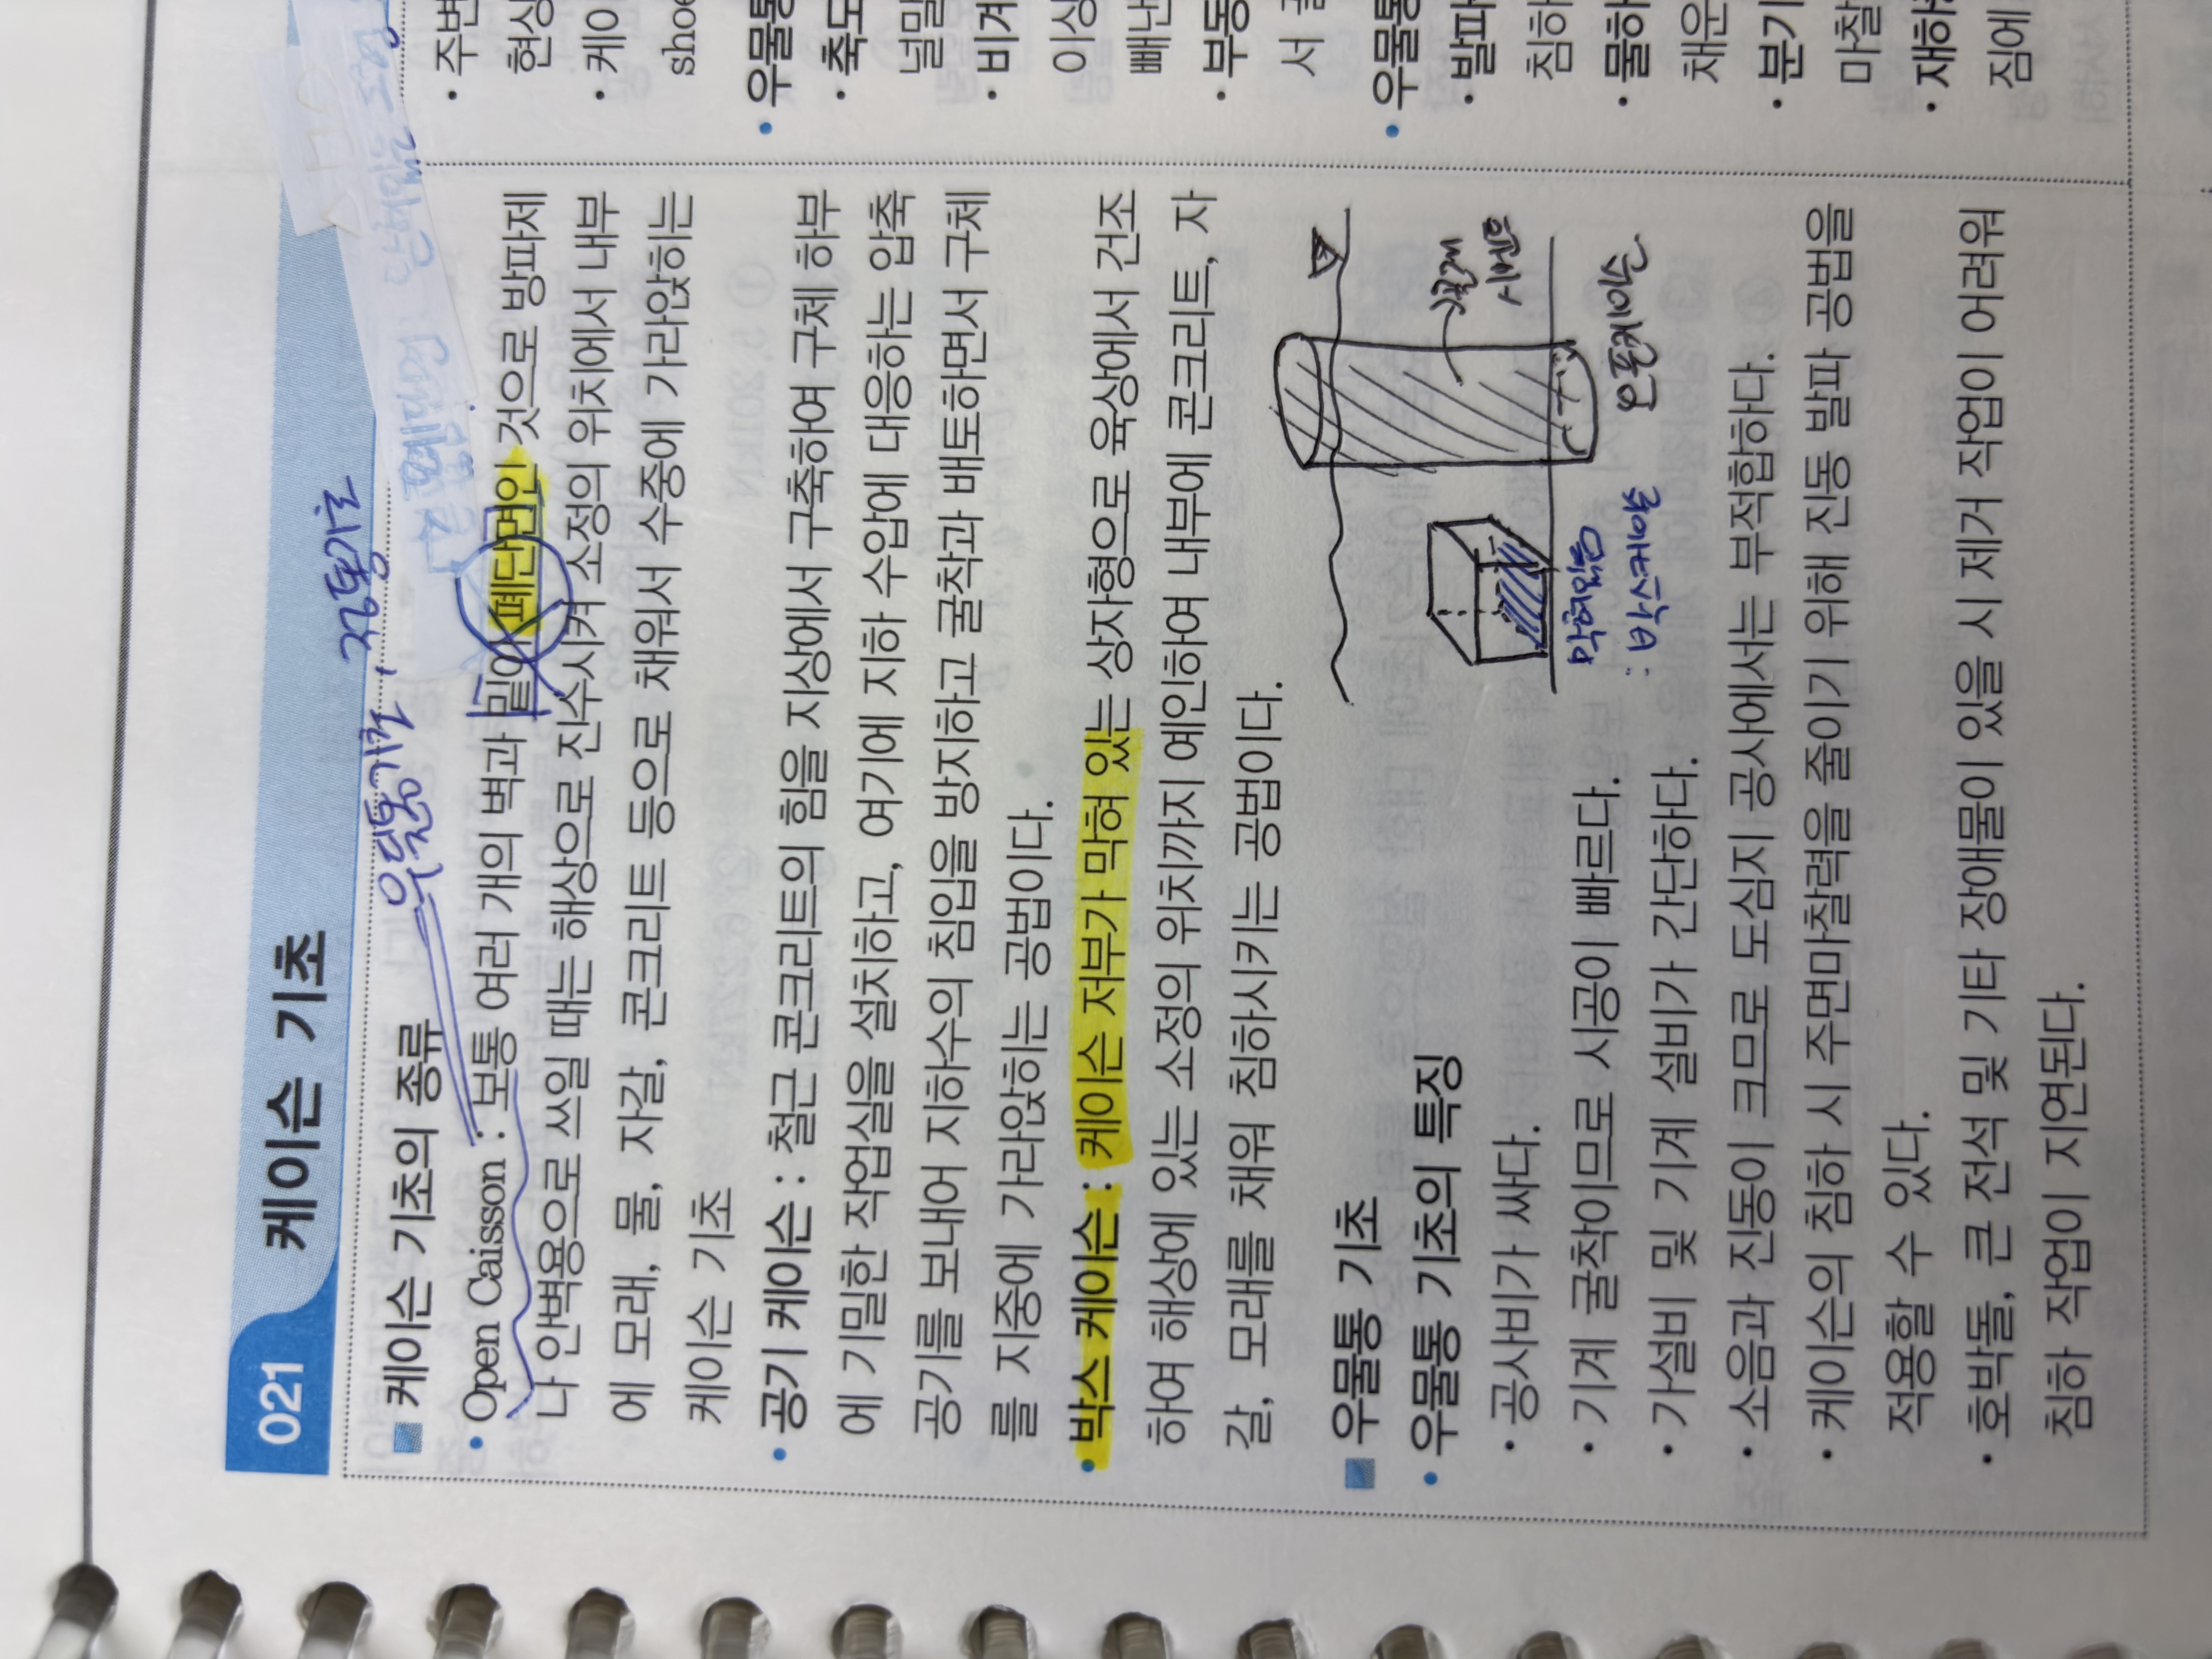 021 케이슨 기초
우물통기초, 피어기초
케이슨 기초의 종류
• Open Caisson : 보통 여러 개의 벽과 밑이 폐단면인 것으로 방파제
나 안벽용으로 쓰일 때는 해상으로 진수시켜 소정의 위치에서 내부
에 모래, 물, 자갈, 콘크리트 등으로 채워서 수중에 가라앉히는
케이슨 기초
• 공기 케이슨 : 철근 콘크리트의 힘을 지상에서 구축하여 구체 하부
에 기밀한 작업실을 설치하고, 여기에 지하 수압에 대응하는 압축
공기를 보내어 지하수의 침입을 방지하고 굴착과 배토하면서 구체
를 지중에 가라앉히는 공법이다.
• 박스 케이슨 : 케이슨 저부가 막혀 있는 상자형으로 육상에서 건조
하여 해상에 있는 소정의 위치까지 예인하여 내부에 콘크리트, 자
갈, 모래를 채워 침하시키는 공법이다.
우물통 기초
• 우물통 기초의 특징
• 공사비가 싸다.
• 기계 굴착이므로 시공이 빠르다.
• 가설비 및 기계 설비가 간단하다.
• 소음과 진동이 크므로 도심지 공사에서는 부적합하다.
• 케이슨의 침하 시 주면마찰력을 줄이기 위해 진동 발파 공법을
적용할 수 있다.
• 호박돌, 큰 전석 및 기타 장애물이 있을 시 제거 작업이 어려워
침하 작업이 지연된다.
막혀있음
: 박스케이슨
오픈케이슨
• 주변
현상
• 케이
shoe
• 우물통
• 축도
널밀
• 비계
이상
빼낸
• 부동
서
• 우물통
• 발파
침하
• 물하
채운
• 분기
마찰
• 재하
짐에